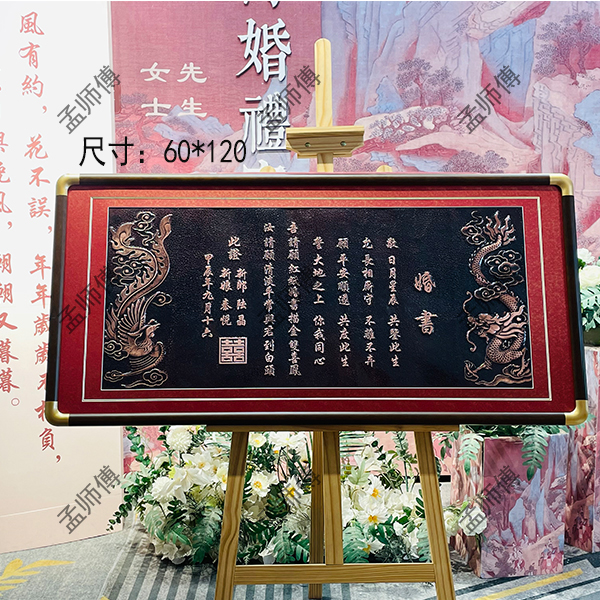 婚禮
先生
女士
風有約，花不誤，年年歲歲不相負，
風，朝朝又暮暮。
尺寸：60*120
婚書
敬日月星辰 共鑒此生
允長相廝守 不離不弃
願平安順遂 共度此生
大地之上 你我同心
請願紅 書描金雙喜鳳
請願 與君到白頭
此證
新郎
新娘 秦悅
甲辰年九月十六
囍
孟师傅
孟师傅
孟师傅
孟师傅
孟师傅
孟师傅
孟师傅
孟师傅
孟师傅